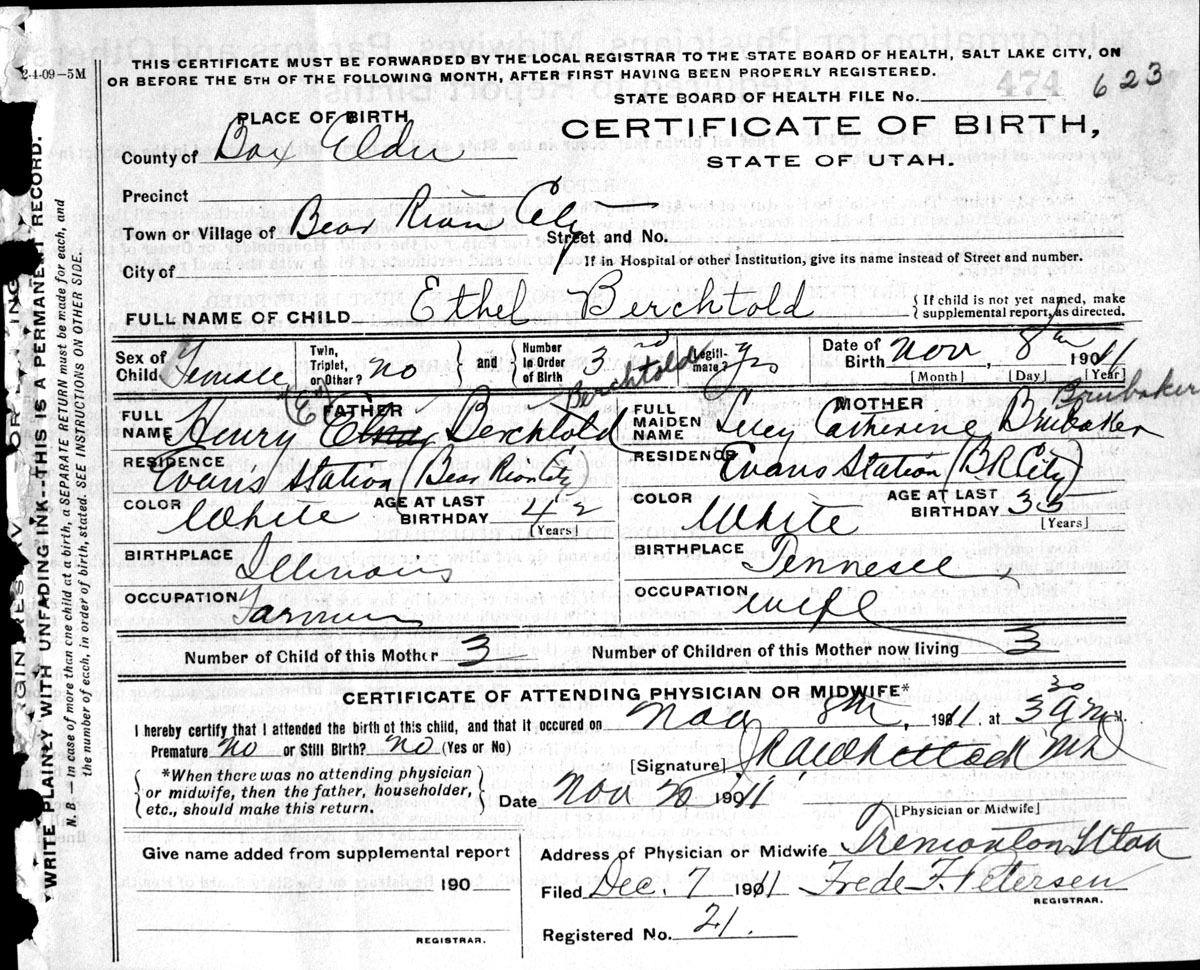 2-4-09-5M
THIS CERTIFICATE MUST BE FORWARDED BY THE LOCAL REGISTRAR TO THE STATE BOARD OF HEALTH, SALT LAKE CITY, ON
OR BEFORE THE 5TH OF THE FOLLOWING MONTH, AFTER FIRST HAVING BEEN PROPERLY REGISTERED.
STATE BOARD OF HEALTH FILE No. 474 623
PLACE OF BIRTH
CERTIFICATE OF BIRTH,
STATE OF UTAH.
County of Box Elder
Precinct
Town or Village of Bear River City Street and No.
City of If in Hospital or other Institution, give its name instead of Street and number.
FULL NAME OF CHILD Ethel Berchtold {If child is not yet named, make supplemental report, as directed.
Sex of Child Female Twin, Triplet, or Other? no } and { Number in Order of Birth 3rd Legiti-mate? yes Date of Birth Nov 8th 1911
[Month] [Day] [Year]
(E) Berchtold Brubaker
FATHER MOTHER
FULL NAME Henry Berchtold FULL MAIDEN NAME Lucy Catherine Brubaker
RESIDENCE Evans Station (Bear River City) RESIDENCE Evans Station (B R City)
COLOR White AGE AT LAST BIRTHDAY 42 [Years] COLOR White AGE AT LAST BIRTHDAY 33 [Years]
BIRTHPLACE Illinois BIRTHPLACE Tennesee
OCCUPATION Farmer OCCUPATION wife
Number of Child of this Mother 3 Number of Children of this Mother now living 3
CERTIFICATE OF ATTENDING PHYSICIAN OR MIDWIFE*
I hereby certify that I attended the birth of this child, and that it occured on Nov 8th, 1911 at 3 30 a m.
Premature no or Still Birth? no (Yes or No)
[Signature] MD
{*When there was no attending physician
or midwife, then the father, householder,
etc., should make this return.}
Date Nov 20 1911
[Physician or Midwife]
Give name added from supplemental report
190
REGISTRAR.
Address of Physician or Midwife Tremonton Utah
Filed Dec. 7 1911 Frede F. Petersen
REGISTRAR.
Registered No. 21.
WRITE PLAINLY WITH UNFADING INK--THIS IS A PERMANENT RECORD.
N. B. — In case of more than one child at a birth, a SEPARATE RETURN must be made for each, and
the number of each, in order of birth, stated. SEE INSTRUCTIONS ON OTHER SIDE.